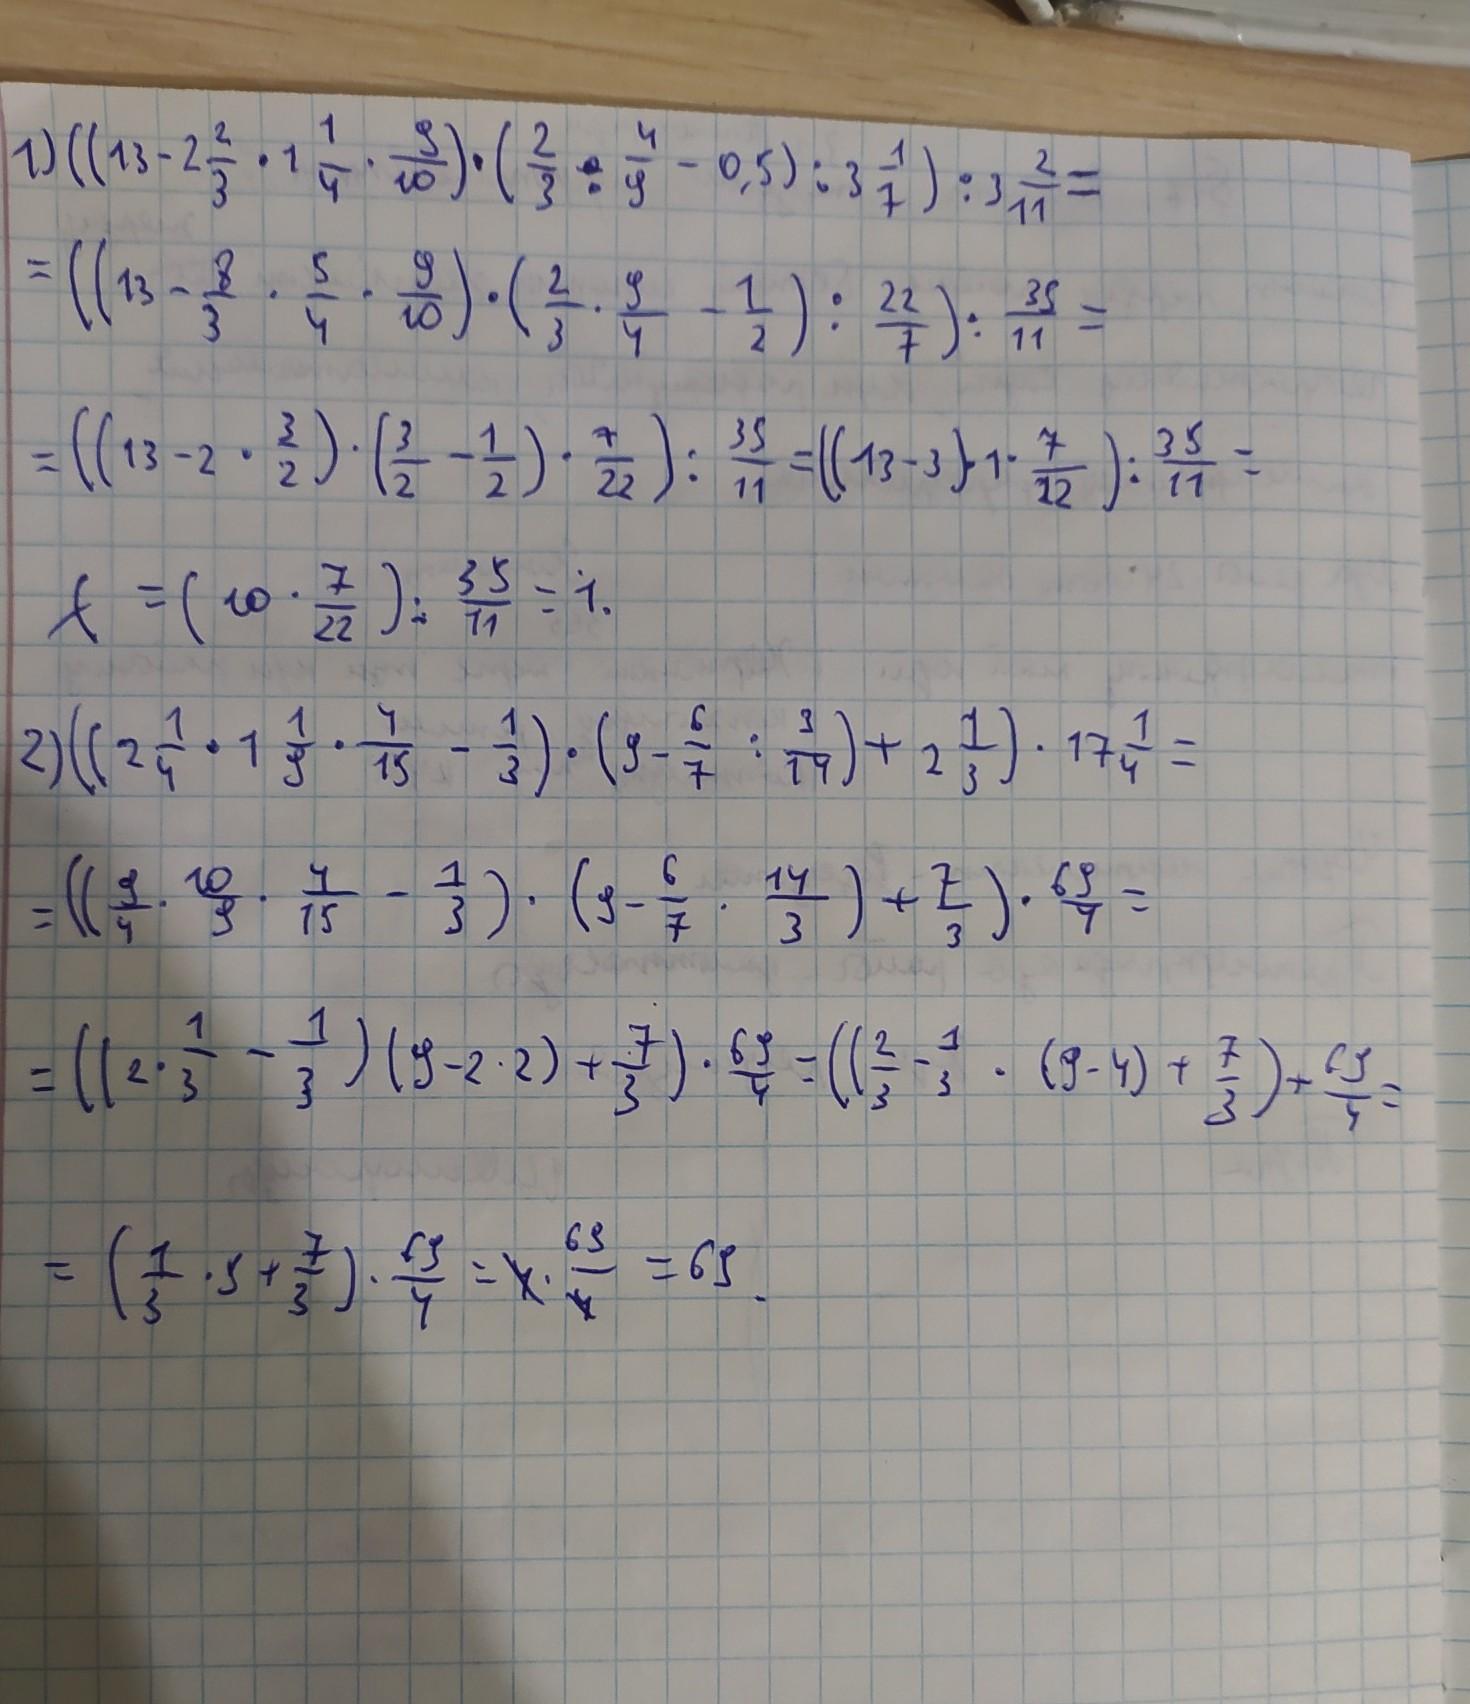 1) ((13 - 2 2/3 · 1 1/4 · 9/10) · (2/3 : 4/9 - 0,5) : 3 1/7) : 3 2/11 =
= ((13 - 8/3 · 5/4 · 9/10) · (2/3 · 9/4 - 1/2) : 22/7) : 35/11 =
= ((13 - 2 · 3/2) · (3/2 - 1/2) · 7/22) : 35/11 = ((13 - 3) · 1 · 7/22) : 35/11 =
= (10 · 7/22) : 35/11 = 1.
2) ((2 1/4 · 1 1/9 · 4/15 - 1/3) · (9 - 6/7 : 3/14) + 2 1/3) · 17 1/4 =
= ((9/4 · 10/9 · 4/15 - 1/3) · (9 - 6/7 · 14/3) + 7/3) · 69/4 =
= ((2 · 1/3 - 1/3) (9 - 2 · 2) + 7/3) · 69/4 = ((2/3 - 1/3 · (9 - 4) + 7/3) + 69/4 =
= (1/3 · 5 + 7/3) · 69/4 = 4 · 69/4 = 69.